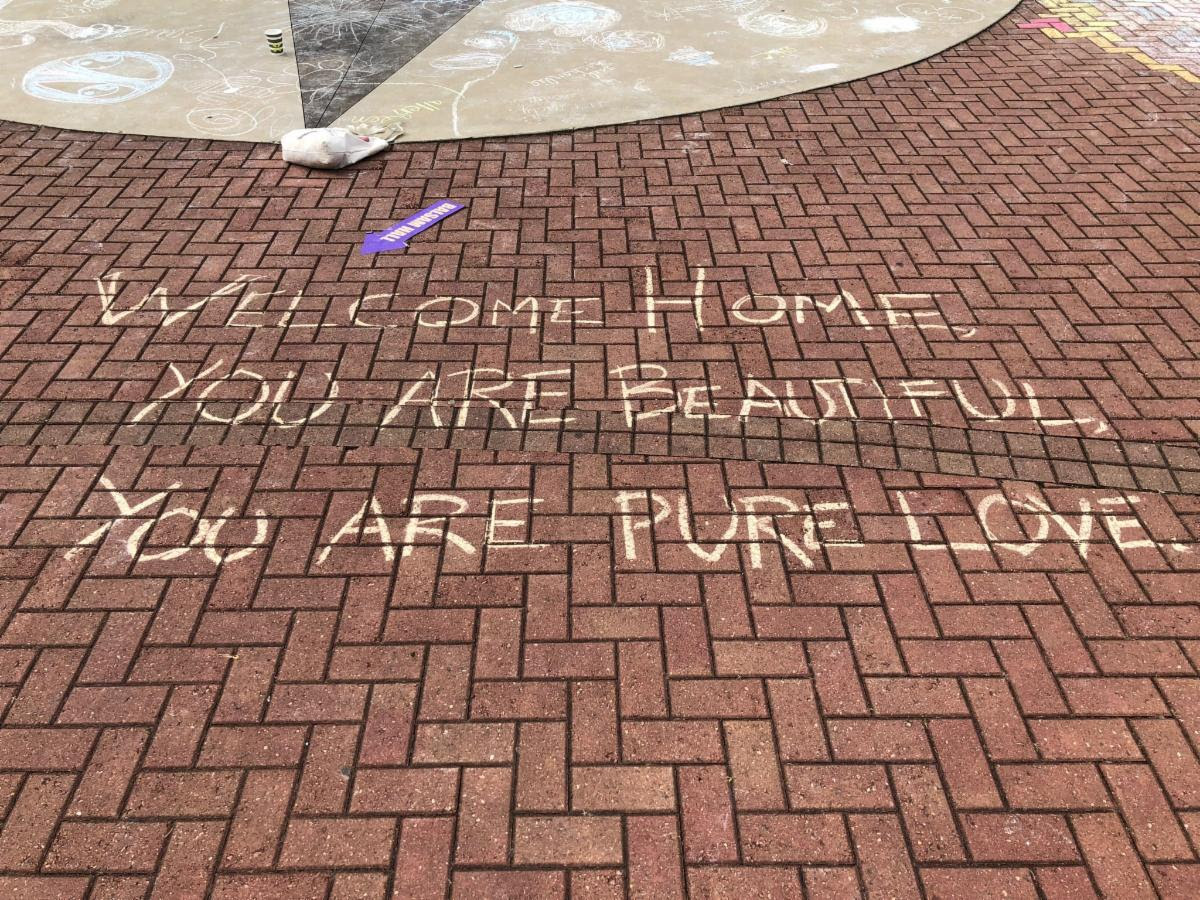 BALSAM HALL
WELCOME HOME,
YOU ARE BEAUTIFUL,
YOU ARE PURE LOVE.